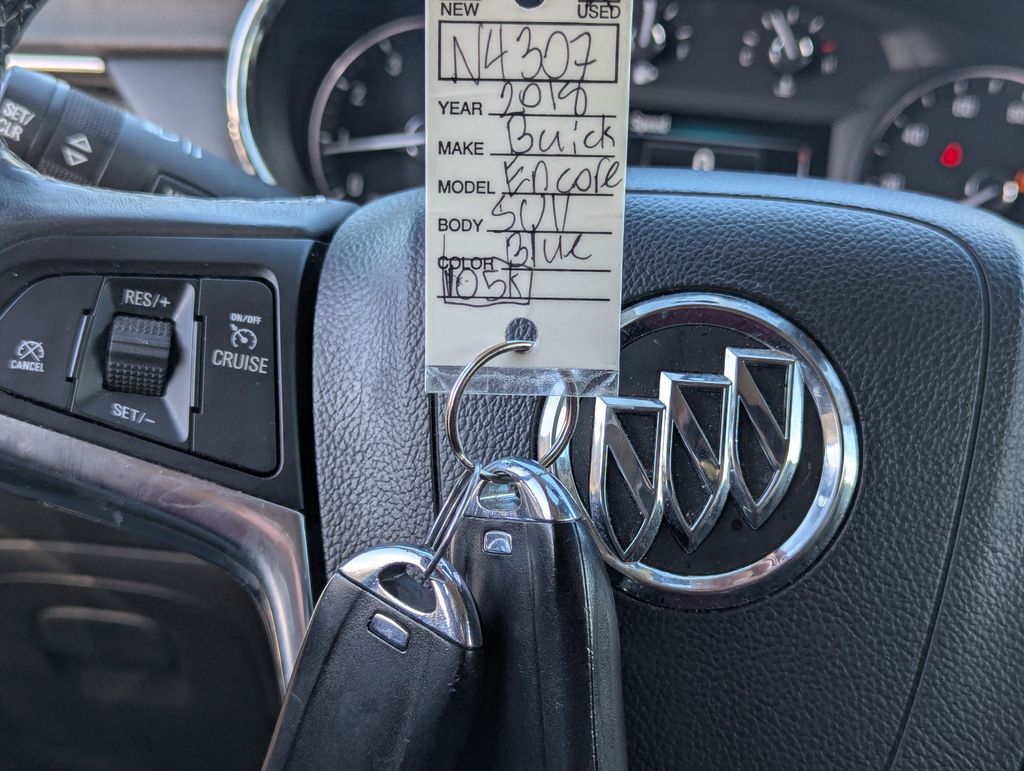 NEW USED
N4307
YEAR 2018
MAKE Buick
MODEL Encore
BODY SUV
COLOR Blue
105K
SET/
CLR
RES/+
CANCEL
ON/OFF
CRUISE
SET/-
Speed
0